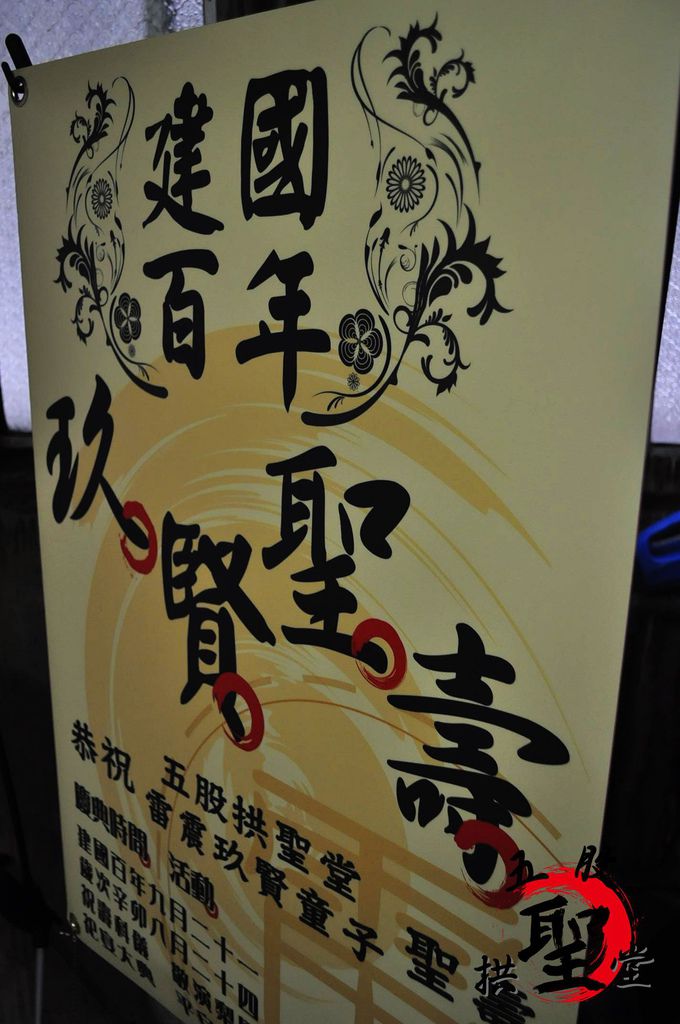 建國
百年
玖賢聖壽
恭祝 五股拱聖堂
雷震玖賢童子 聖壽
慶典時間 活動
建國百年九月二十一
歲次辛卯八月二十四
祝壽科儀
五股
拱聖堂